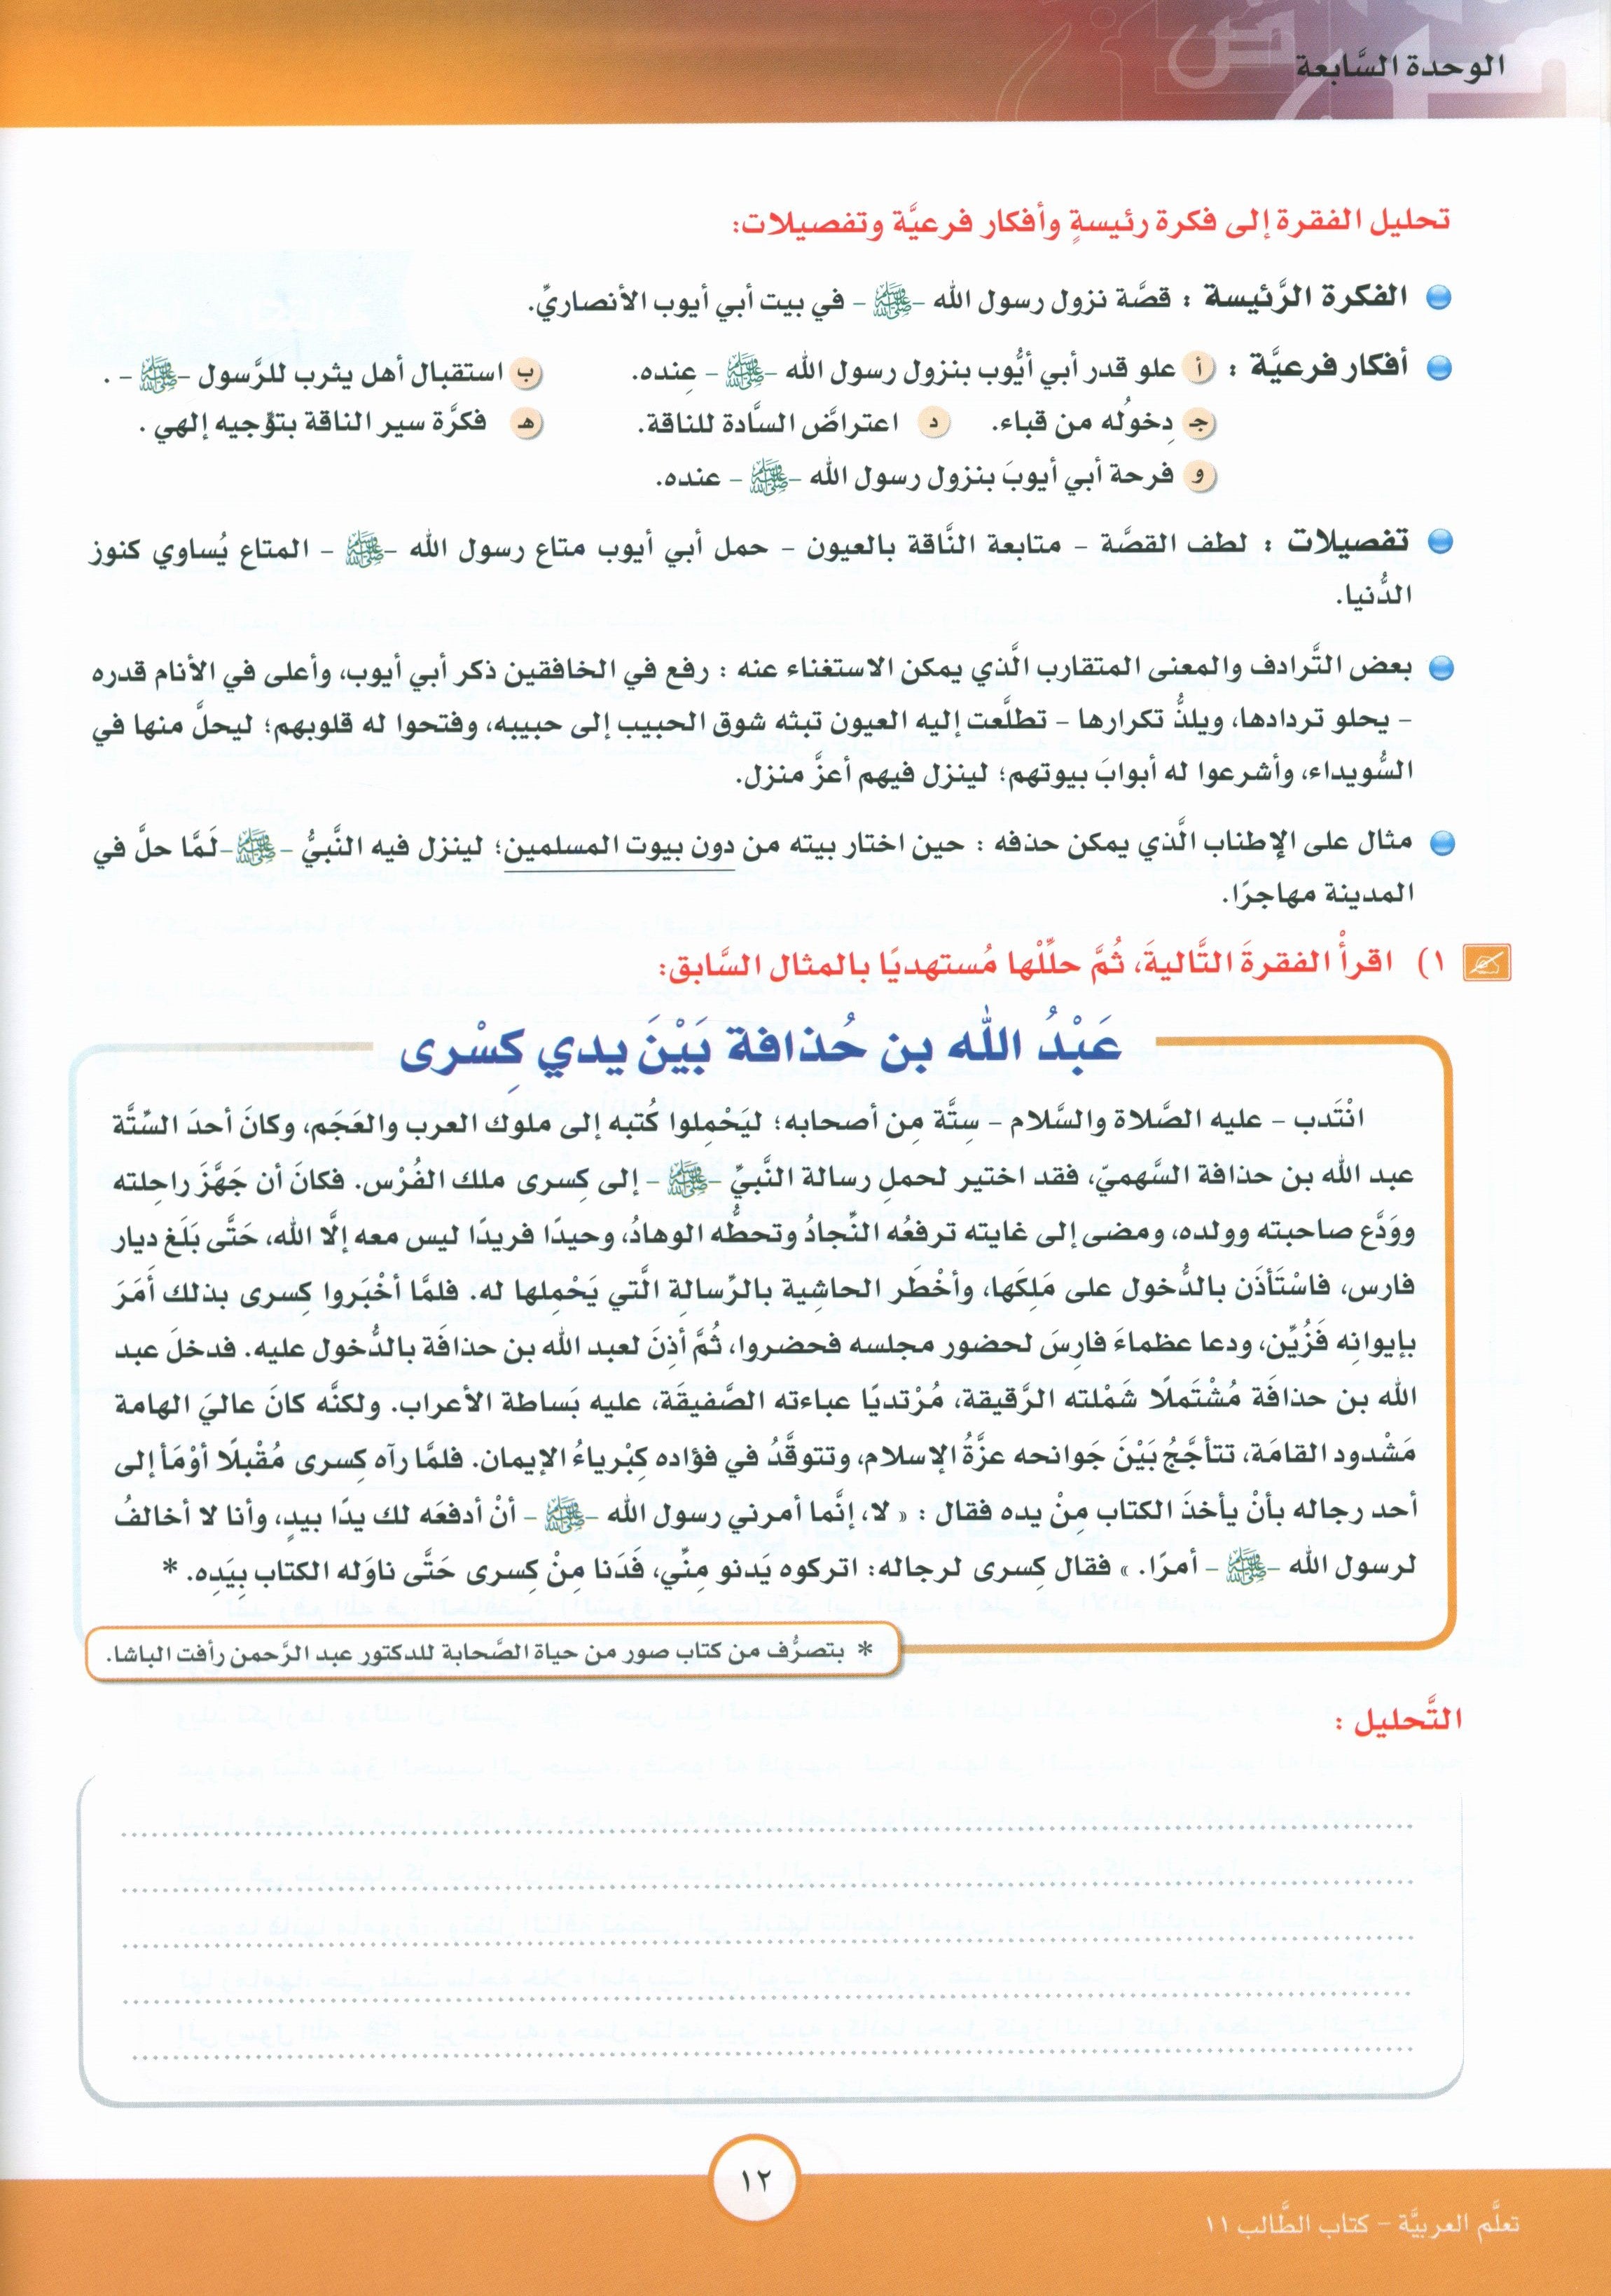 الوحدة السَّابعة
تحليل الفقرة إلى فكرة رئيسةٍ وأفكار فرعيَّة وتفصيلات:
الفكرة الرَّئيسة : قصَّة نزول رسول الله - ﷺ - في بيت أبي أيوب الأنصاريِّ.
أفكار فرعيَّة : أ علو قدر أبي أيُّوب بنزول رسول الله - ﷺ - عِنده. ب استقبال أهل يثرب للرَّسول - ﷺ - .
جـ دِخولُه من قباء. د اعتراضَ السَّادة للناقة. هـ فكرَّة سير الناقة بتوِّجيه إلهي .
و فرحة أبي أيوبَ بنزول رسول الله - ﷺ - عنده.
تفصيلات : لطف القصَّة - متابعة النَّاقة بالعيون - حمل أبي أيوب متاع رسول الله - ﷺ - المتاع يُساوي كنوز
الدُّنيا.
بعض التَّرادف والمعنى المتقارب الَّذي يمكن الاستغناء عنه : رفع في الخافقين ذكر أبي أيوب، وأعلى في الأنام قدره
- يحلو تردادها، ويلذُّ تكرارها - تطلَّعت إليه العيون تبثه شوق الحبيب إلى حبيبه، وفتحوا له قلوبهم؛ ليحلَّ منها في
السُّويداء، وأشرعوا له أبوابَ بيوتهم؛ لينزل فيهم أعزَّ منزل.
مثال على الإطناب الَّذي يمكن حذفه : حين اختار بيته من دون بيوت المسلمين؛ لينزل فيه النَّبيُّ - ﷺ -لَمَّا حلَّ في
المدينة مهاجرًا.
١) اقرأْ الفقرةَ التَّاليةَ، ثُمَّ حلِّلْها مُستهديًا بالمثال السَّابق:
عَبْدُ الله بن حُذافة بَيْنَ يدي كِسْرى
انْتَدب - عليه الصَّلاة والسَّلام - سِتَّة مِن أصحابه؛ ليَحْمِلوا كُتبه إلى ملوك العرب والعَجَم، وكانَ أحدَ السِّتَّة
عبد الله بن حذافة السَّهميّ، فقد اختير لحملِ رسالة النَّبيِّ - ﷺ - إلى كِسرى ملك الفُرْس. فكانَ أن جَهَّزَ راحِلته
ووَدَّع صاحبته وولده، ومضى إلى غايته ترفعُه النِّجادُ وتحطُّه الوهادُ، وحيدًا فريدًا ليس معه إلَّا الله، حَتَّى بَلَغ ديار
فارس، فاسْتَأذَن بالدُّخول على مَلِكَها، وأخْطَر الحاشية بالرِّسالة الَّتي يَحْمِلها له. فلمَّا أخْبَروا كِسرى بذلك أَمَرَ
بإيوانِه فَزُيِّن، ودعا عظماءَ فارِسَ لحضور مجلسه فحضروا، ثُمَّ أذِنَ لعبد الله بن حذافَة بالدُّخول عليه. فدخلَ عبد
الله بن حذافَة مُشْتَملًا شَمْلته الرَّقيقة، مُرْتديًا عباءته الصَّفيقَة، عليه بَساطة الأعراب. ولكنَّه كانَ عاليَ الهامة
مَشْدود القامَة، تتأجَّجُ بَيْنَ جَوانحه عزَّةُ الإسلام، وتتوقَّدُ في فؤاده كِبْرياءُ الإيمان. فلمَّا رآه كِسرى مُقْبلًا أوْمَأ إلى
أحد رجاله بأنْ يأخذَ الكتاب مِنْ يده فقال : « لا، إنَّما أمرني رسول الله - ﷺ - أنْ أدفعَه لك يدًا بيدٍ، وأنا لا أخالفُ
لرسول الله - ﷺ - أمرًا. » فقال كِسرى لرجاله: اتركوه يَدنو مِنِّي، فَدَنا مِنْ كِسرى حَتَّى ناوَله الكتاب بيَدِه. *
* بتصرُّف من كتاب صور من حياة الصَّحابة للدكتور عبد الرَّحمن رأفت الباشا.
التَّحليل :
١٢
تعلَّم العربيَّة - كتاب الطَّالب ١١